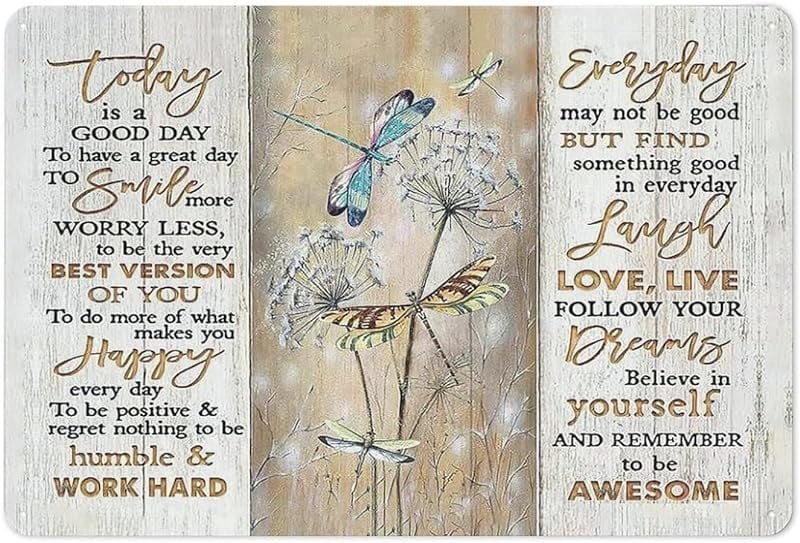 Today
is a
GOOD DAY
To have a great day
TO Smile more
WORRY LESS,
to be the very
BEST VERSION
OF YOU
To do more of what
makes you
Happy
every day
To be positive &
regret nothing to be
humble &
WORK HARD
Everyday
may not be good
BUT FIND
something good
in everyday
Laugh
LOVE, LIVE
FOLLOW YOUR
Dreams
Believe in
yourself
AND REMEMBER
to be
AWESOME